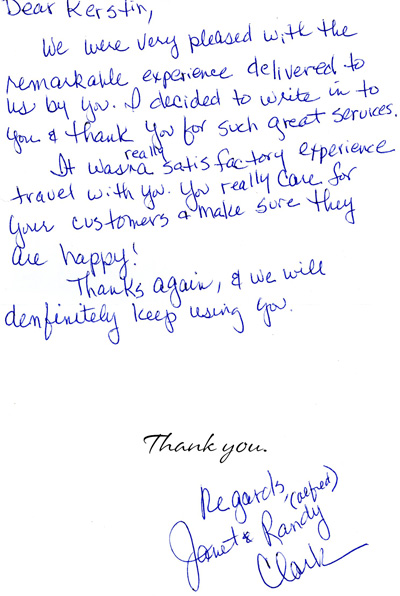 Dear Kerstin,
We were very pleased with the
remarkable experience delivered to
us by you. I decided to write in to
you & thank you for such great services.
really
It was a satisfactory experience
travel with you. You really care for
your customers & make sure they
are happy!
Thanks again, & we will
denfinitely keep using you.
Thank you.
Regards,
(alfred)
Janet & Randy
Clark